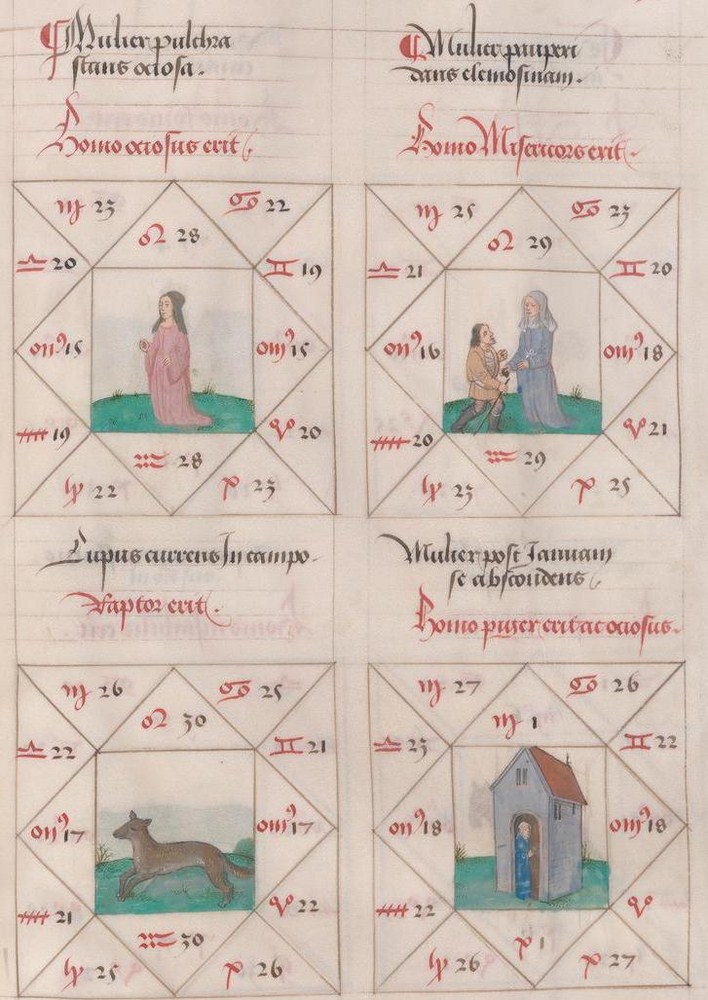 Mulier pulchra
stans ociosa.
Homo ociosus erit.
♍ 23 ♌ 28 ♋ 22
♎ 20 ♊ 19
15 15
19 ♈ 20
♑ 22 ♒ 28 ♓ 23
Mulier pauperi
dans elemosinam.
Homo Misericors erit.
♍ 25 ♌ 29 ♋ 23
♎ 21 ♊ 20
16 18
20 ♈ 21
♑ 23 ♒ 29 ♓ 25
Lupus currens In campo.
Raptor erit.
♍ 26 ♌ 30 ♋ 25
♎ 22 ♊ 21
17 17
21 ♈ 22
♑ 25 ♒ 30 ♓ 26
Mulier post Januam
se abscondens
Homo piger erit ac ociosus.
♍ 27 ♍ 1 ♋ 26
♎ 23 ♊ 22
18 18
22 ♈
♑ 26 ♓ 1 ♓ 27